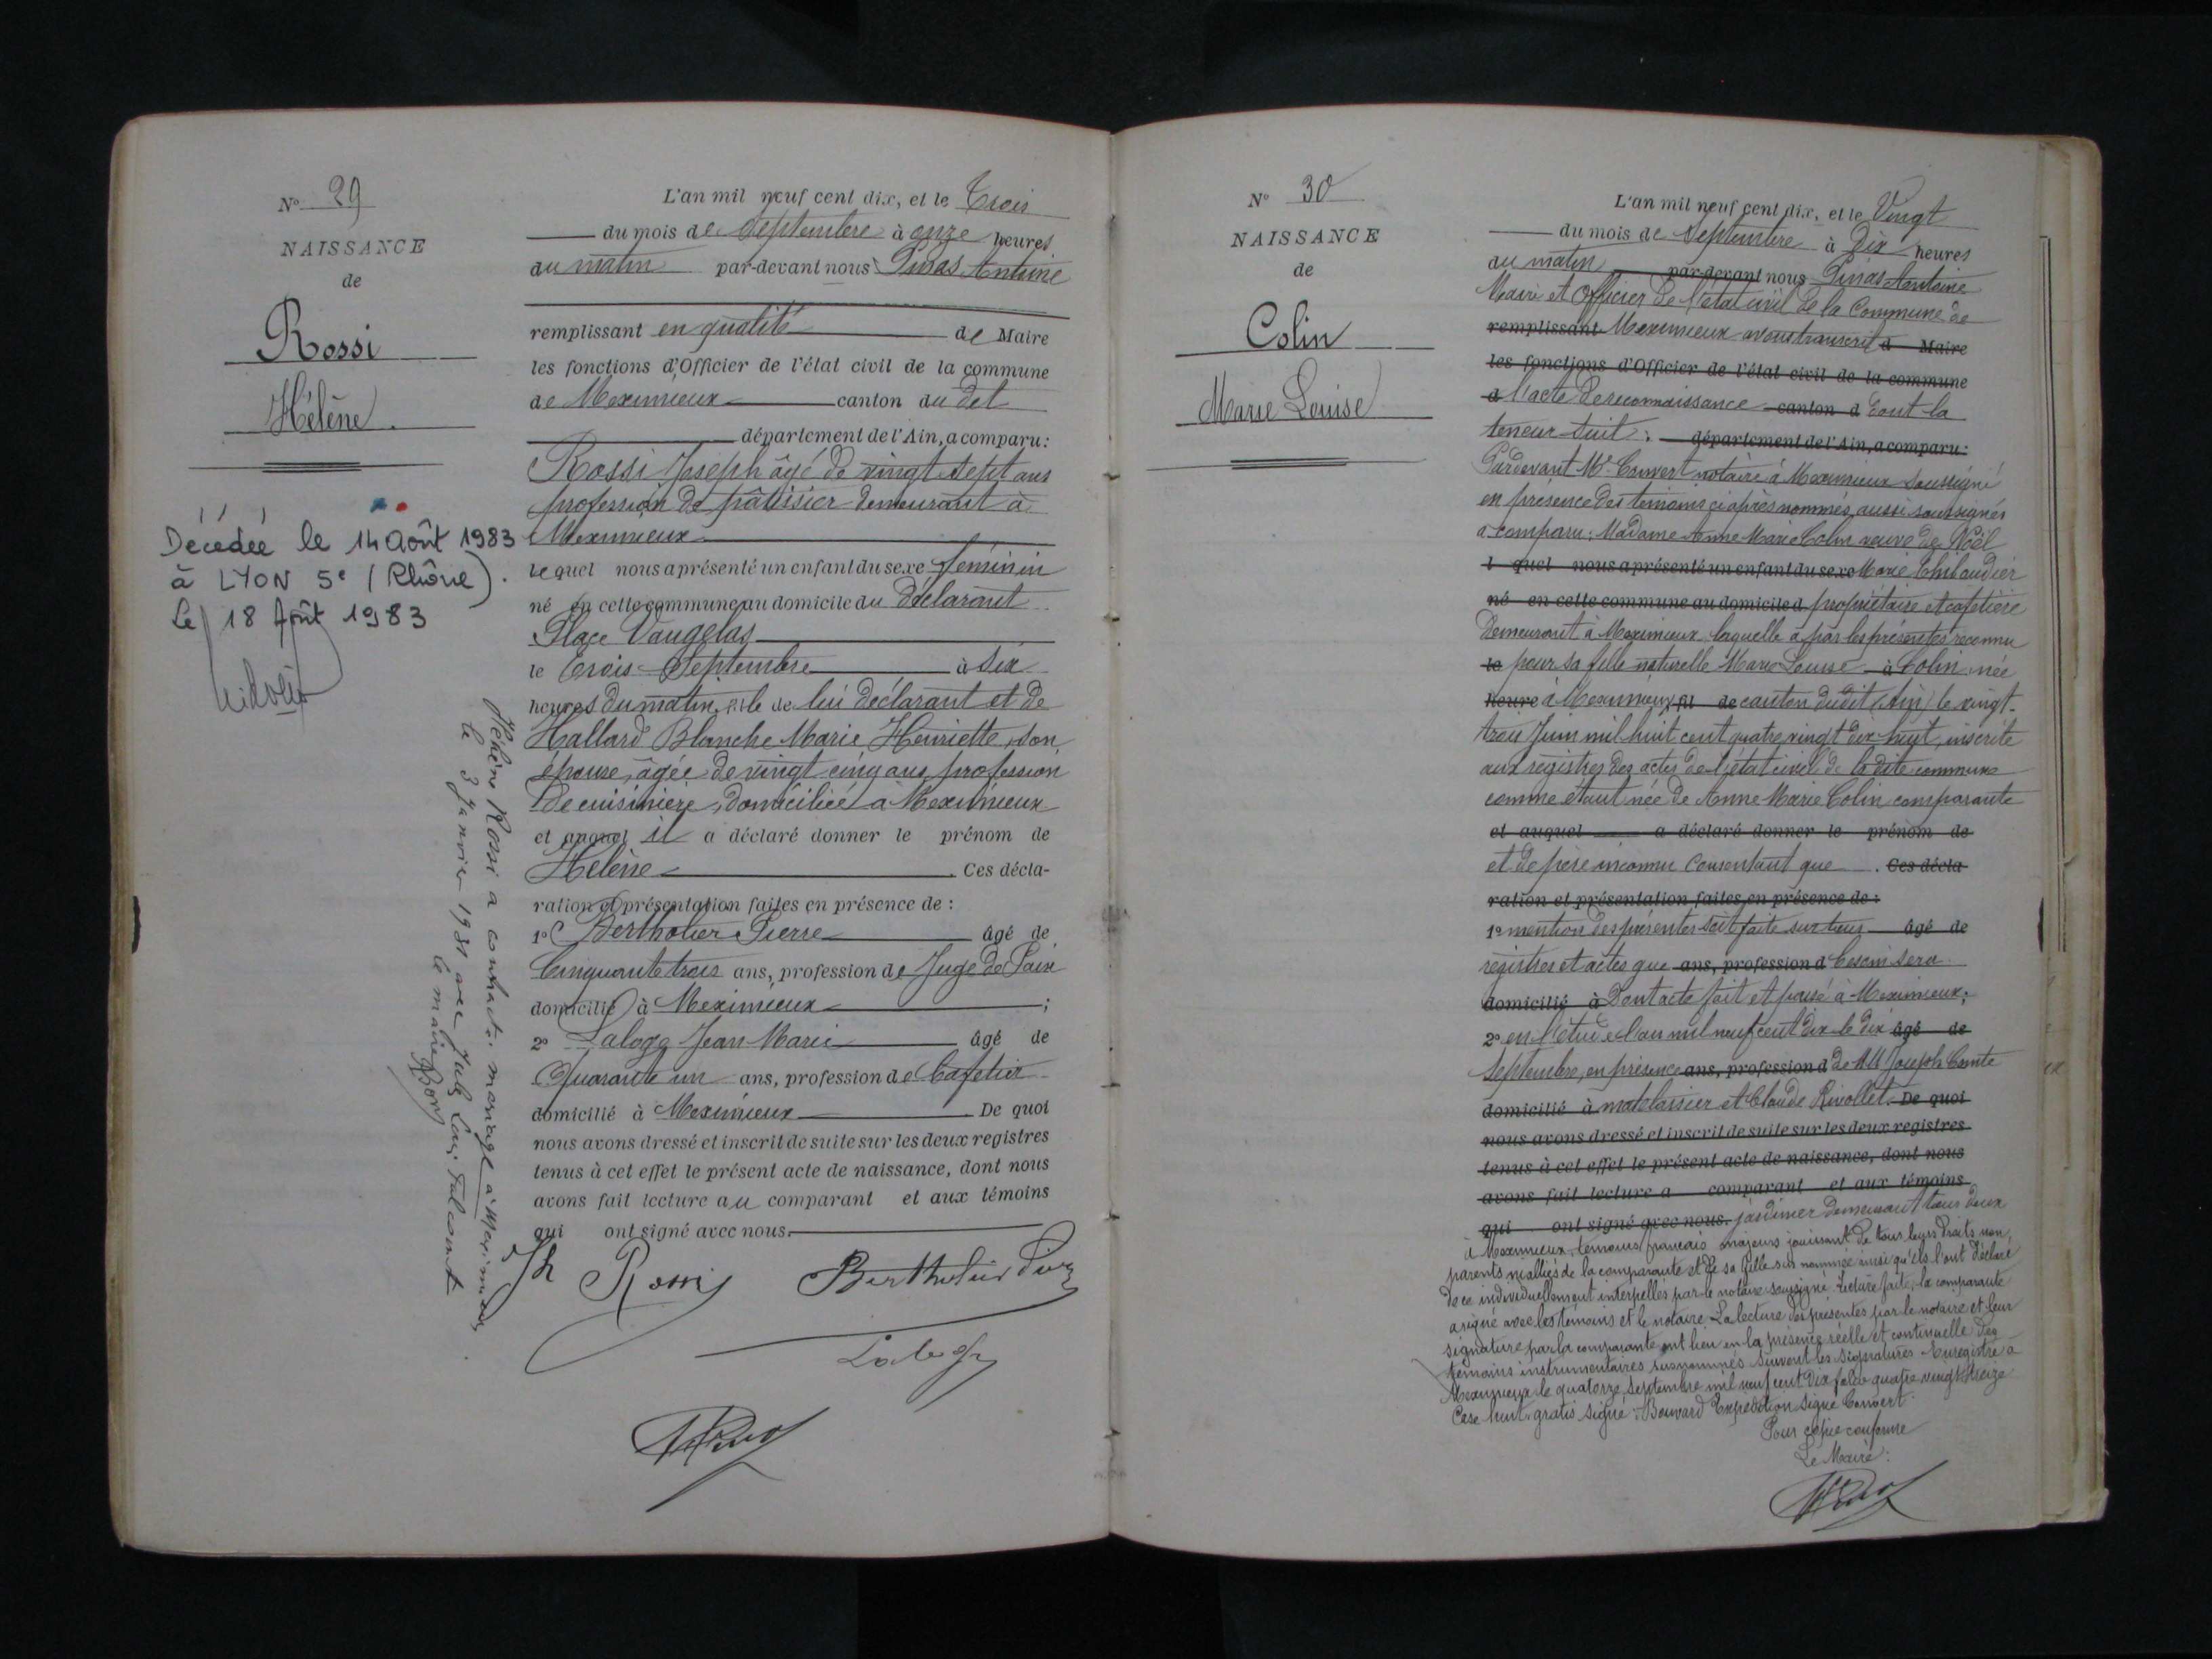 N° 29
NAISSANCE
de
Rossi
Hélène.
Décédée le 14 Août 1983
à LYON 5e (Rhône).
Le 18 Août 1983
Hélène Rossi a contracté mariage à Meximieux
le 3 Janvier 1931 avec
le maire
L'an mil neuf cent dix, et le Trois
du mois de Septembre à onze heures
du matin par-devant nous Pinas Antoine
remplissant en qualité de Maire
les fonctions d'Officier de l'état civil de la commune
de Meximieux canton du dit
département de l'Ain, a comparu:
Rossi Joseph âgé de vingt sept ans
profession de pâtissier demeurant à
Meximieux
lequel nous a présenté un enfant du sexe féminin
né en cette commune au domicile du déclarant
Place Vaugelas
le Trois Septembre à six
heures du matin, fille de lui déclarant et de
Hallard Blanche Marie Henriette, son
épouse, âgée de vingt cinq ans, profession
de cuisinière, domiciliée à Meximieux
et auquel il a déclaré donner le prénom de
Hélène. Ces décla-
ration et présentation faites en présence de :
1° Bertholier Pierre âgé de
Cinquante trois ans, profession de Juge de Paix
domicilié à Meximieux ;
2° Laloge Jean Marie âgé de
Quarante un ans, profession de Cafetier
domicilié à Meximieux De quoi
nous avons dressé et inscrit de suite sur les deux registres
tenus à cet effet le présent acte de naissance, dont nous
avons fait lecture au comparant et aux témoins
qui ont signé avec nous.
Jh Rossi
Laloge
N° 30
NAISSANCE
de
Colin
Marie Louise
L'an mil neuf cent dix, et le Vingt
du mois de Septembre à Dix heures
du matin par-devant nous Pinas Antoine
Maire et Officier de l'état civil de la Commune de
remplissant Meximieux avons transcrit d Maire
les fonctions d'Officier de l'état civil de la commune
d l'acte de reconnaissance canton d dont la
teneur suit : département de l'Ain, a comparu:
Pardevant Me Convert notaire à Meximieux soussigné
en présence des témoins ci après nommés, aussi soussignés
a comparu : Madame Anne Marie Colin veuve de Noël
l quel nous a présenté un enfant du sexe Marie
né en cette commune au domicile d propriétaire et cafetière
demeurant à Meximieux laquelle a par les présentes reconnu
le pour sa fille naturelle Marie Louise à Colin née
heure à Meximieux fil de canton dudit (Ain) le vingt-
trois Juin mil huit cent quatre vingt dix huit, inscrite
aux registres des actes de l'état civil de la dite commune
comme étant née de Anne Marie Colin comparante
et auquel a déclaré donner le prénom de
et de père inconnu consentant que . Ces décla-
ration et présentation faites en présence de :
1° mention des présentes soit faite sur tous âgé de
registres et actes que ans, profession d besoin sera
domicilié à Dont acte fait et passé à Meximieux ;
2° en l'étude l'an mil neuf cent dix le dix âgé de
Septembre, en présence ans, profession d de MM Joseph Comte
domicilié à matelassier et Claude Rivollet De quoi
nous avons dressé et inscrit de suite sur les deux registres
tenus à cet effet le présent acte de naissance, dont nous
avons fait lecture a comparant et aux témoins
qui ont signé avec nous. jardinier demeurant tous deux
à Meximieux, témoins français majeurs jouissant de tous leurs droits non
parents ni alliés de la comparante et de sa fille sus nommée ainsi qu'ils l'ont déclaré
de ce individuellement interpellés par le notaire soussigné. Lecture faite, la comparante
a signé avec les témoins et le notaire. La lecture des présentes par le notaire et leur
signature par la comparante ont lieu en la présence réelle et continuelle des
témoins instrumentaires susnommés Suivent les signatures. Enregistré à
Meximieux le quatorze Septembre mil neuf cent dix folio quatre vingt treize
Case huit gratis signé : Bouvard Expédition signé Convert
Pour copie conforme
Le Maire :